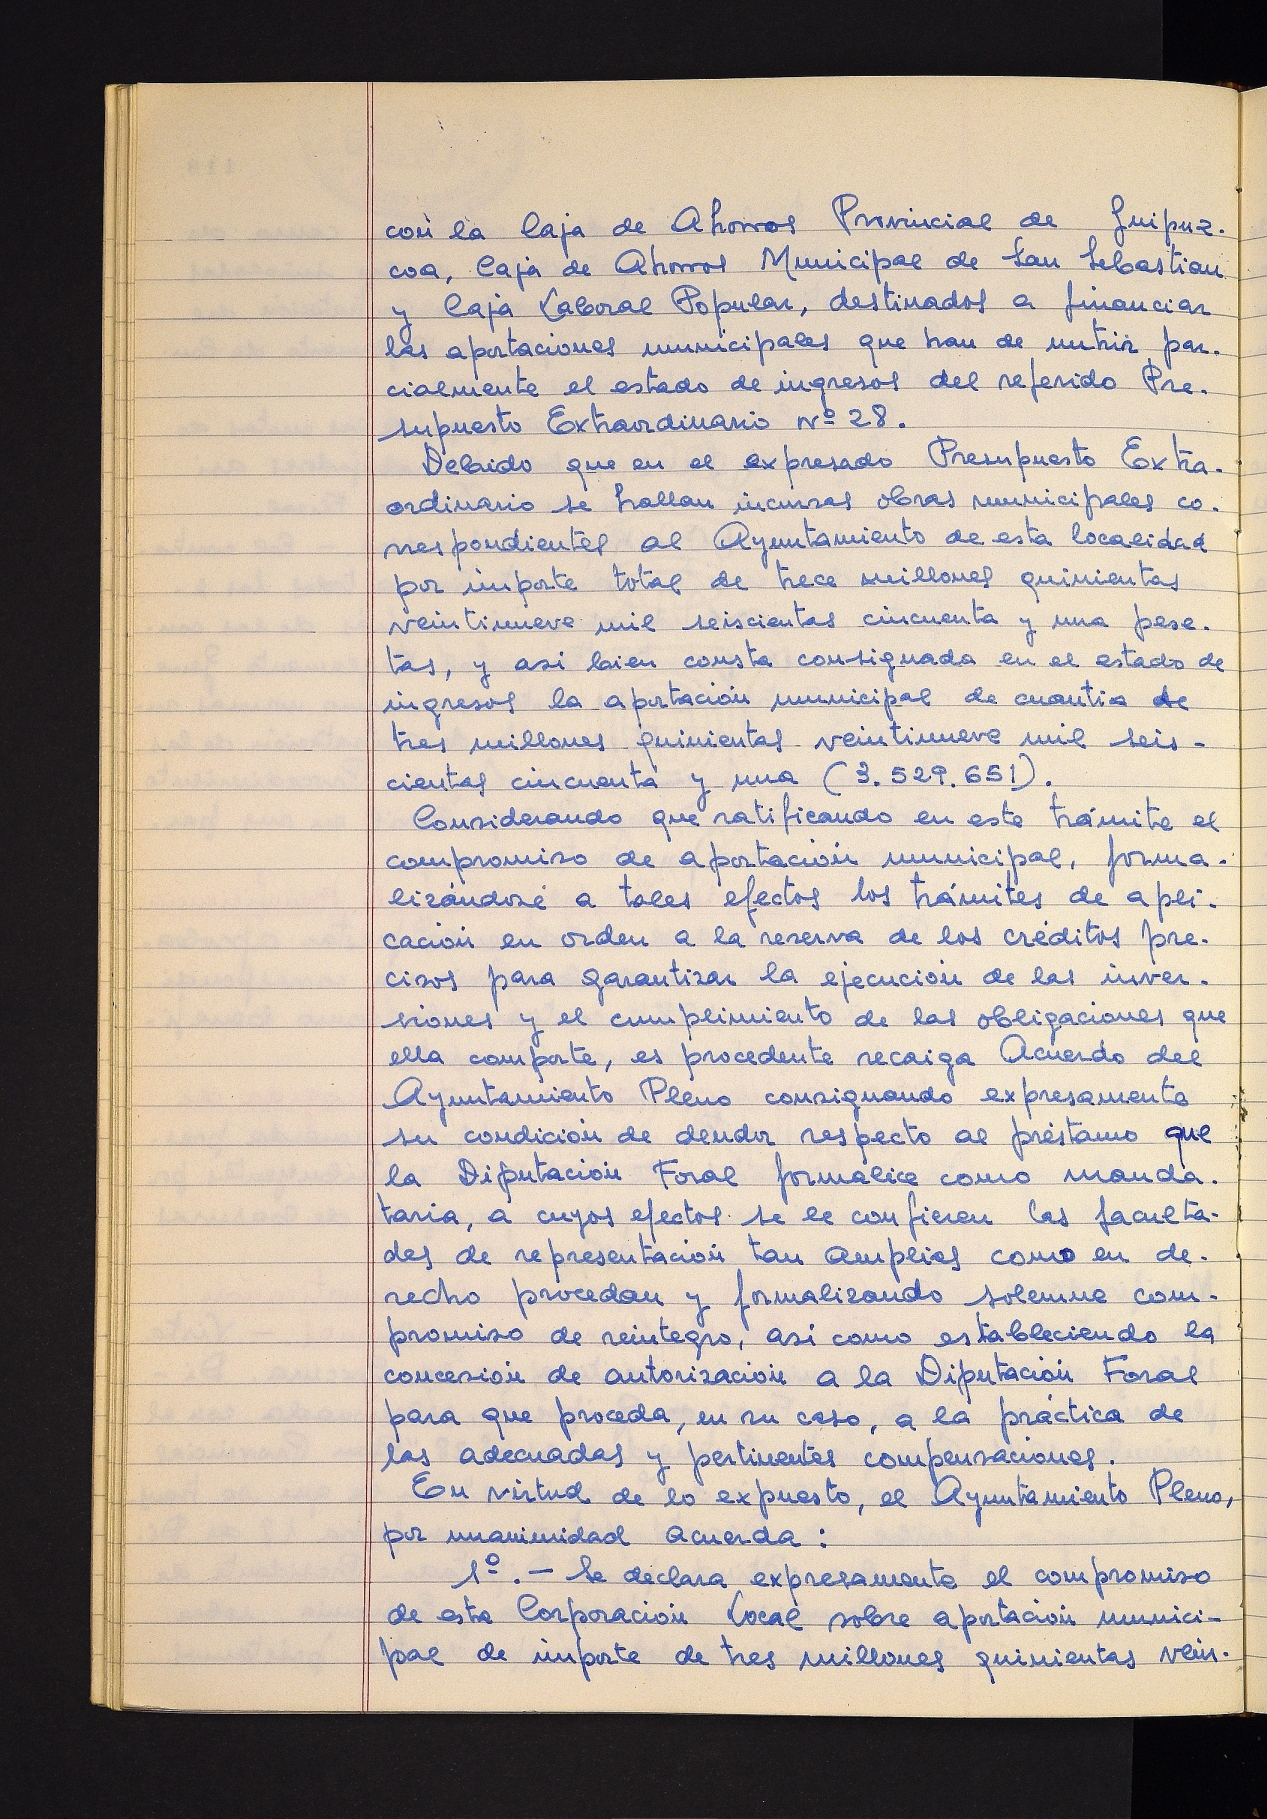 con la Caja de Ahorros Provincial de Guipuz-
coa, Caja de Ahorros Municipal de San Sebastian
y Caja Laboral Popular, destinados a financiar
las aportaciones municipales que han de nutrir par-
cialmente el estado de ingresos del referido Pre-
supuesto Extraordinario nº 28.
Debido que en el expresado Presupuesto Extra-
ordinario se hallan incursas obras municipales co-
rrespondientes al Ayuntamiento de esta localidad
por importe total de trece millones quinientas
veintinueve mil seiscientas cincuenta y una pese-
tas, y asi bien consta consignada en el estado de
ingresos la aportación municipal de cuantia de
tres millones quinientas veintinueve mil seis-
cientas cincuenta y una (3.529.651).
Considerando que ratificando en este trámite el
compromiso de aportación municipal, forma-
lizándose a tales efectos los trámites de apli-
cación en orden a la reserva de los créditos pre-
cisos para garantizar la ejecución de las inver-
siones y el cumplimiento de las obligaciones que
ella comporte, es procedente recaiga Acuerdo del
Ayuntamiento Pleno consignando expresamente
su condición de deudor respecto al préstamo que
la Diputación Foral formalice como manda-
taria, a cuyos efectos se le confieren las faculta-
des de representación tan amplias como en de-
recho procedan y formalizando solemne com-
promiso de reintegro, asi como estableciendo la
concesión de autorización a la Diputación Foral
para que proceda, en su caso, a la práctica de
las adecuadas y pertinentes compensaciones.
En virtud de lo expuesto, el Ayuntamiento Pleno,
por unanimidad acuerda:
1º.- Se declara expresamente el compromiso
de esta Corporación Local sobre aportación munici-
pal de importe de tres millones quinientas vein-